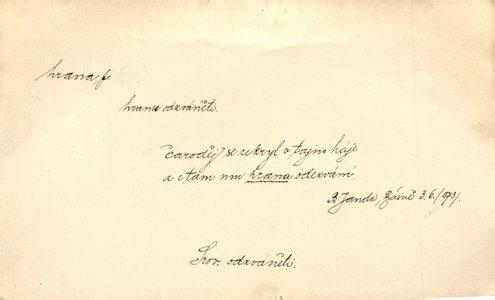 hrana f.
hranu odzváněti.
Čaroděj se ukryl v tajno háje
a i tam mu hrana odezvání.
B. Janda, Básně 3. 6. (1873).
Srov. odzváněti.